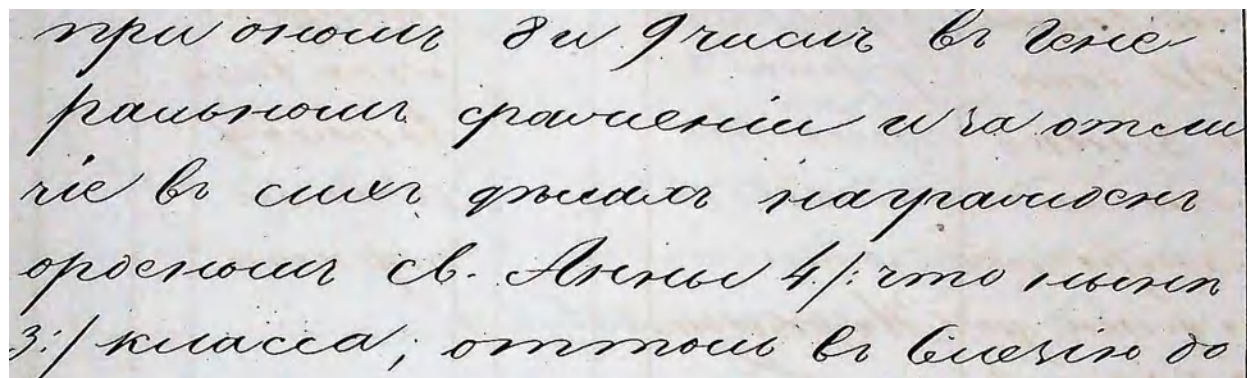 при ономъ 8 и 9 числъ въ Гене
ральномъ сраженіи и за отли
чіе въ сихъ дѣлахъ награжденъ
орденомъ св. Анны 4./: что нынѣ
3:/ класса, оттоль въ Силезію до